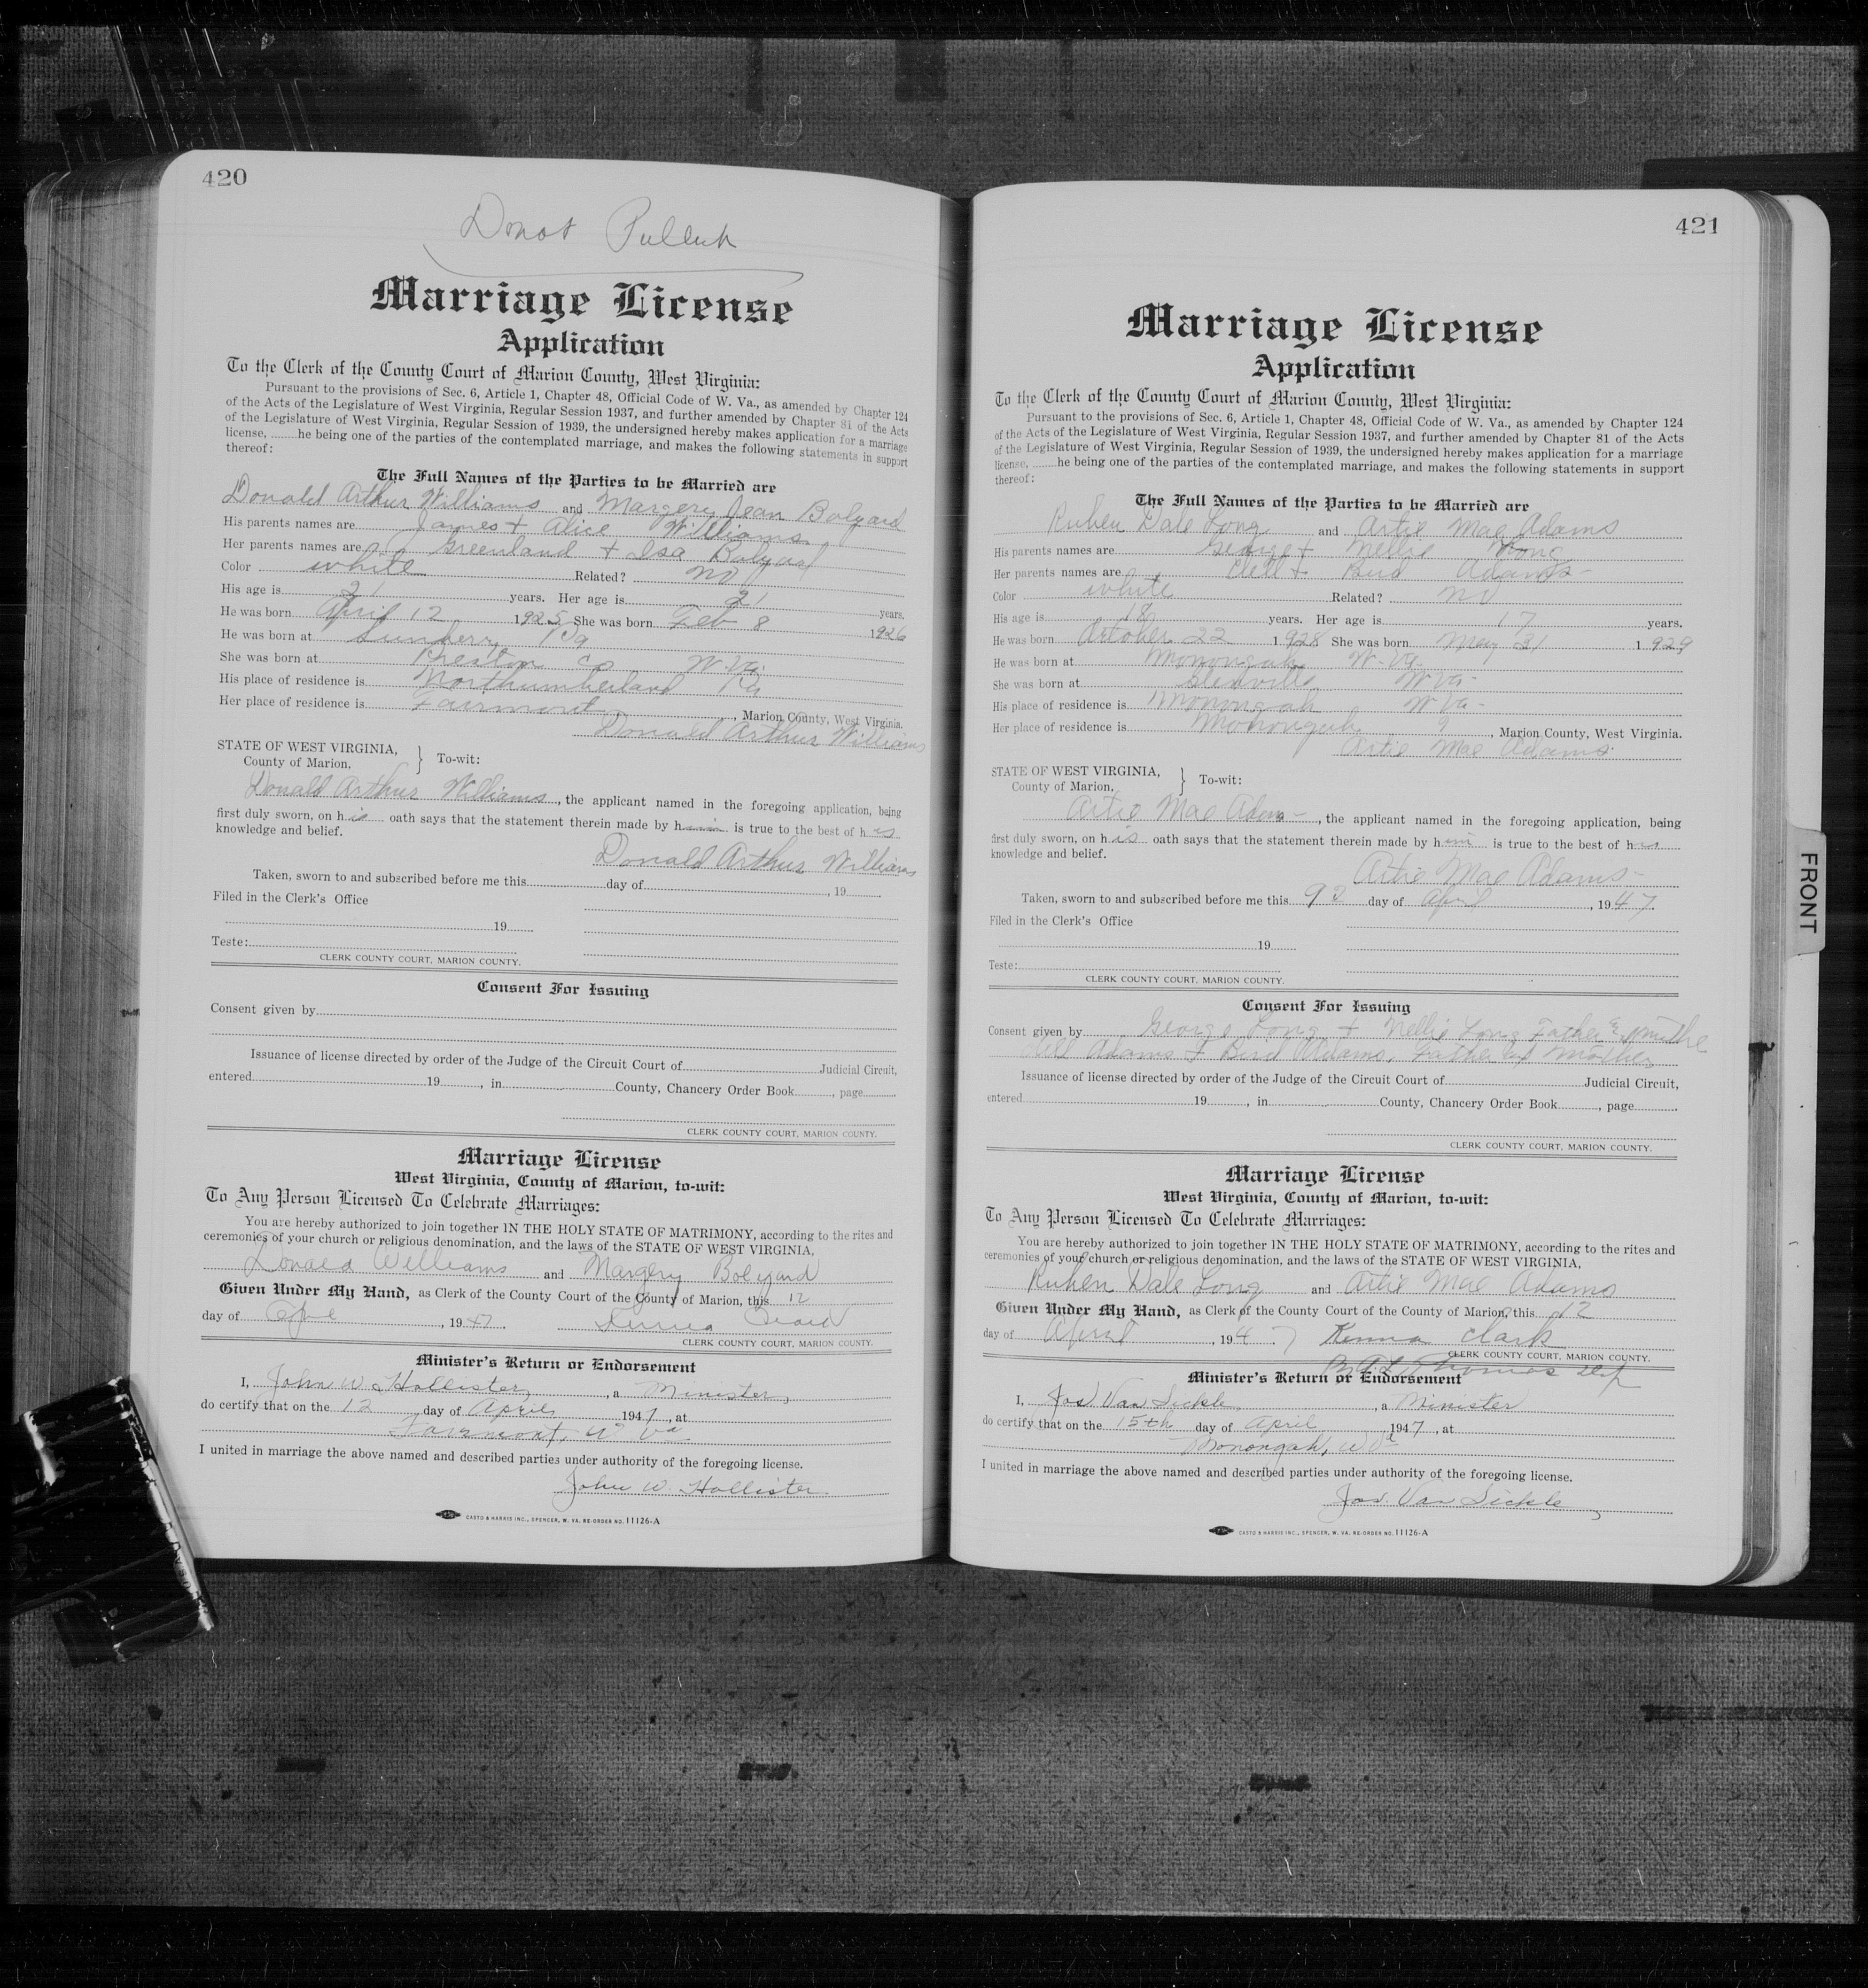 420
Donot Publish
Marriage License
Application
To the Clerk of the County Court of Marion County, West Virginia:
Pursuant to the provisions of Sec. 6, Article 1, Chapter 48, Official Code of W. Va., as amended by Chapter 124
of the Acts of the Legislature of West Virginia, Regular Session 1937, and further amended by Chapter 81 of the Acts
of the Legislature of West Virginia, Regular Session of 1939, the undersigned hereby makes application for a marriage
license, ........he being one of the parties of the contemplated marriage, and makes the following statements in support
thereof:
The Full Names of the Parties to be Married are
Donald Arthur Williams and Margery Jean Bolyard
His parents names are James + Alice Williams
Her parents names are Greenland + Isa Bolyard
Color white Related? no
His age is 21 years. Her age is 21 years.
He was born April 12 1925 She was born Feb 8 1926
He was born at Sunberry Pa
She was born at Preston Co W. Va.
His place of residence is Northumberland Pa
Her place of residence is Fairmont, Marion County, West Virginia.
Donald Arthur Williams
STATE OF WEST VIRGINIA,
County of Marion, } To-wit:
Donald Arthur Williams, the applicant named in the foregoing application, being
first duly sworn, on his oath says that the statement therein made by him is true to the best of his
knowledge and belief.
Donald Arthur Williams
Taken, sworn to and subscribed before me this day of , 19
Filed in the Clerk's Office
19
Teste:
CLERK COUNTY COURT, MARION COUNTY.
Consent For Issuing
Consent given by
Issuance of license directed by order of the Judge of the Circuit Court of Judicial Circuit,
entered 19 , in County, Chancery Order Book , page
CLERK COUNTY COURT, MARION COUNTY.
Marriage License
West Virginia, County of Marion, to-wit:
To Any Person Licensed To Celebrate Marriages:
You are hereby authorized to join together IN THE HOLY STATE OF MATRIMONY, according to the rites and
ceremonies of your church or religious denomination, and the laws of the STATE OF WEST VIRGINIA,
Donald Williams and Margery Bolyard
Given Under My Hand, as Clerk of the County Court of the County of Marion, this 12
day of Apr , 1947.
CLERK COUNTY COURT, MARION COUNTY.
Minister's Return or Endorsement
I, John W. Hollister, a Minister,
do certify that on the 12 day of April 1947, at
Fairmont, W Va
I united in marriage the above named and described parties under authority of the foregoing license.
John W. Hollister
CASTO & HARRIS INC., SPENCER, W. VA. RE-ORDER NO. 11126-A
421
Marriage License
Application
To the Clerk of the County Court of Marion County, West Virginia:
Pursuant to the provisions of Sec. 6, Article 1, Chapter 48, Official Code of W. Va., as amended by Chapter 124
of the Acts of the Legislature of West Virginia, Regular Session 1937, and further amended by Chapter 81 of the Acts
of the Legislature of West Virginia, Regular Session of 1939, the undersigned hereby makes application for a marriage
license, ........he being one of the parties of the contemplated marriage, and makes the following statements in support
thereof:
The Full Names of the Parties to be Married are
Ruben Dale Long and Artie Mae Adams
His parents names are George + Nellie Long
Her parents names are Dell + Bird Adams
Color white Related? no
His age is 18 years. Her age is 17 years.
He was born October 22 1928 She was born May 31 1929
He was born at Monongah W. Va.
She was born at Glenville W. Va.
His place of residence is Monongah W. Va.
Her place of residence is Monongah, Marion County, West Virginia.
Artie Mae Adams
STATE OF WEST VIRGINIA,
County of Marion, } To-wit:
Artie Mae Adams, the applicant named in the foregoing application, being
first duly sworn, on his oath says that the statement therein made by him is true to the best of his
knowledge and belief.
Artie Mae Adams
Taken, sworn to and subscribed before me this day of April , 1947.
Filed in the Clerk's Office
19
Teste:
CLERK COUNTY COURT, MARION COUNTY.
Consent For Issuing
Consent given by George Long + Nellie Long Father & Mother
Dell Adams & Bird Adams, Father and Mother
Issuance of license directed by order of the Judge of the Circuit Court of Judicial Circuit,
entered 19 , in County, Chancery Order Book , page
CLERK COUNTY COURT, MARION COUNTY.
Marriage License
West Virginia, County of Marion, to-wit:
To Any Person Licensed To Celebrate Marriages:
You are hereby authorized to join together IN THE HOLY STATE OF MATRIMONY, according to the rites and
ceremonies of your church or religious denomination, and the laws of the STATE OF WEST VIRGINIA,
Ruben Dale Long and Artie Mae Adams
Given Under My Hand, as Clerk of the County Court of the County of Marion, this 12
day of April , 1947 Kenna Clark
CLERK COUNTY COURT, MARION COUNTY.
Thomas Dep
Minister's Return or Endorsement
I, Jas. Van Sickle, a Minister
do certify that on the 15th day of April 1947, at
Monongah, W Va
I united in marriage the above named and described parties under authority of the foregoing license.
Jas. Van Sickle
CASTO & HARRIS INC., SPENCER, W. VA. RE-ORDER NO. 11126-A
FRONT